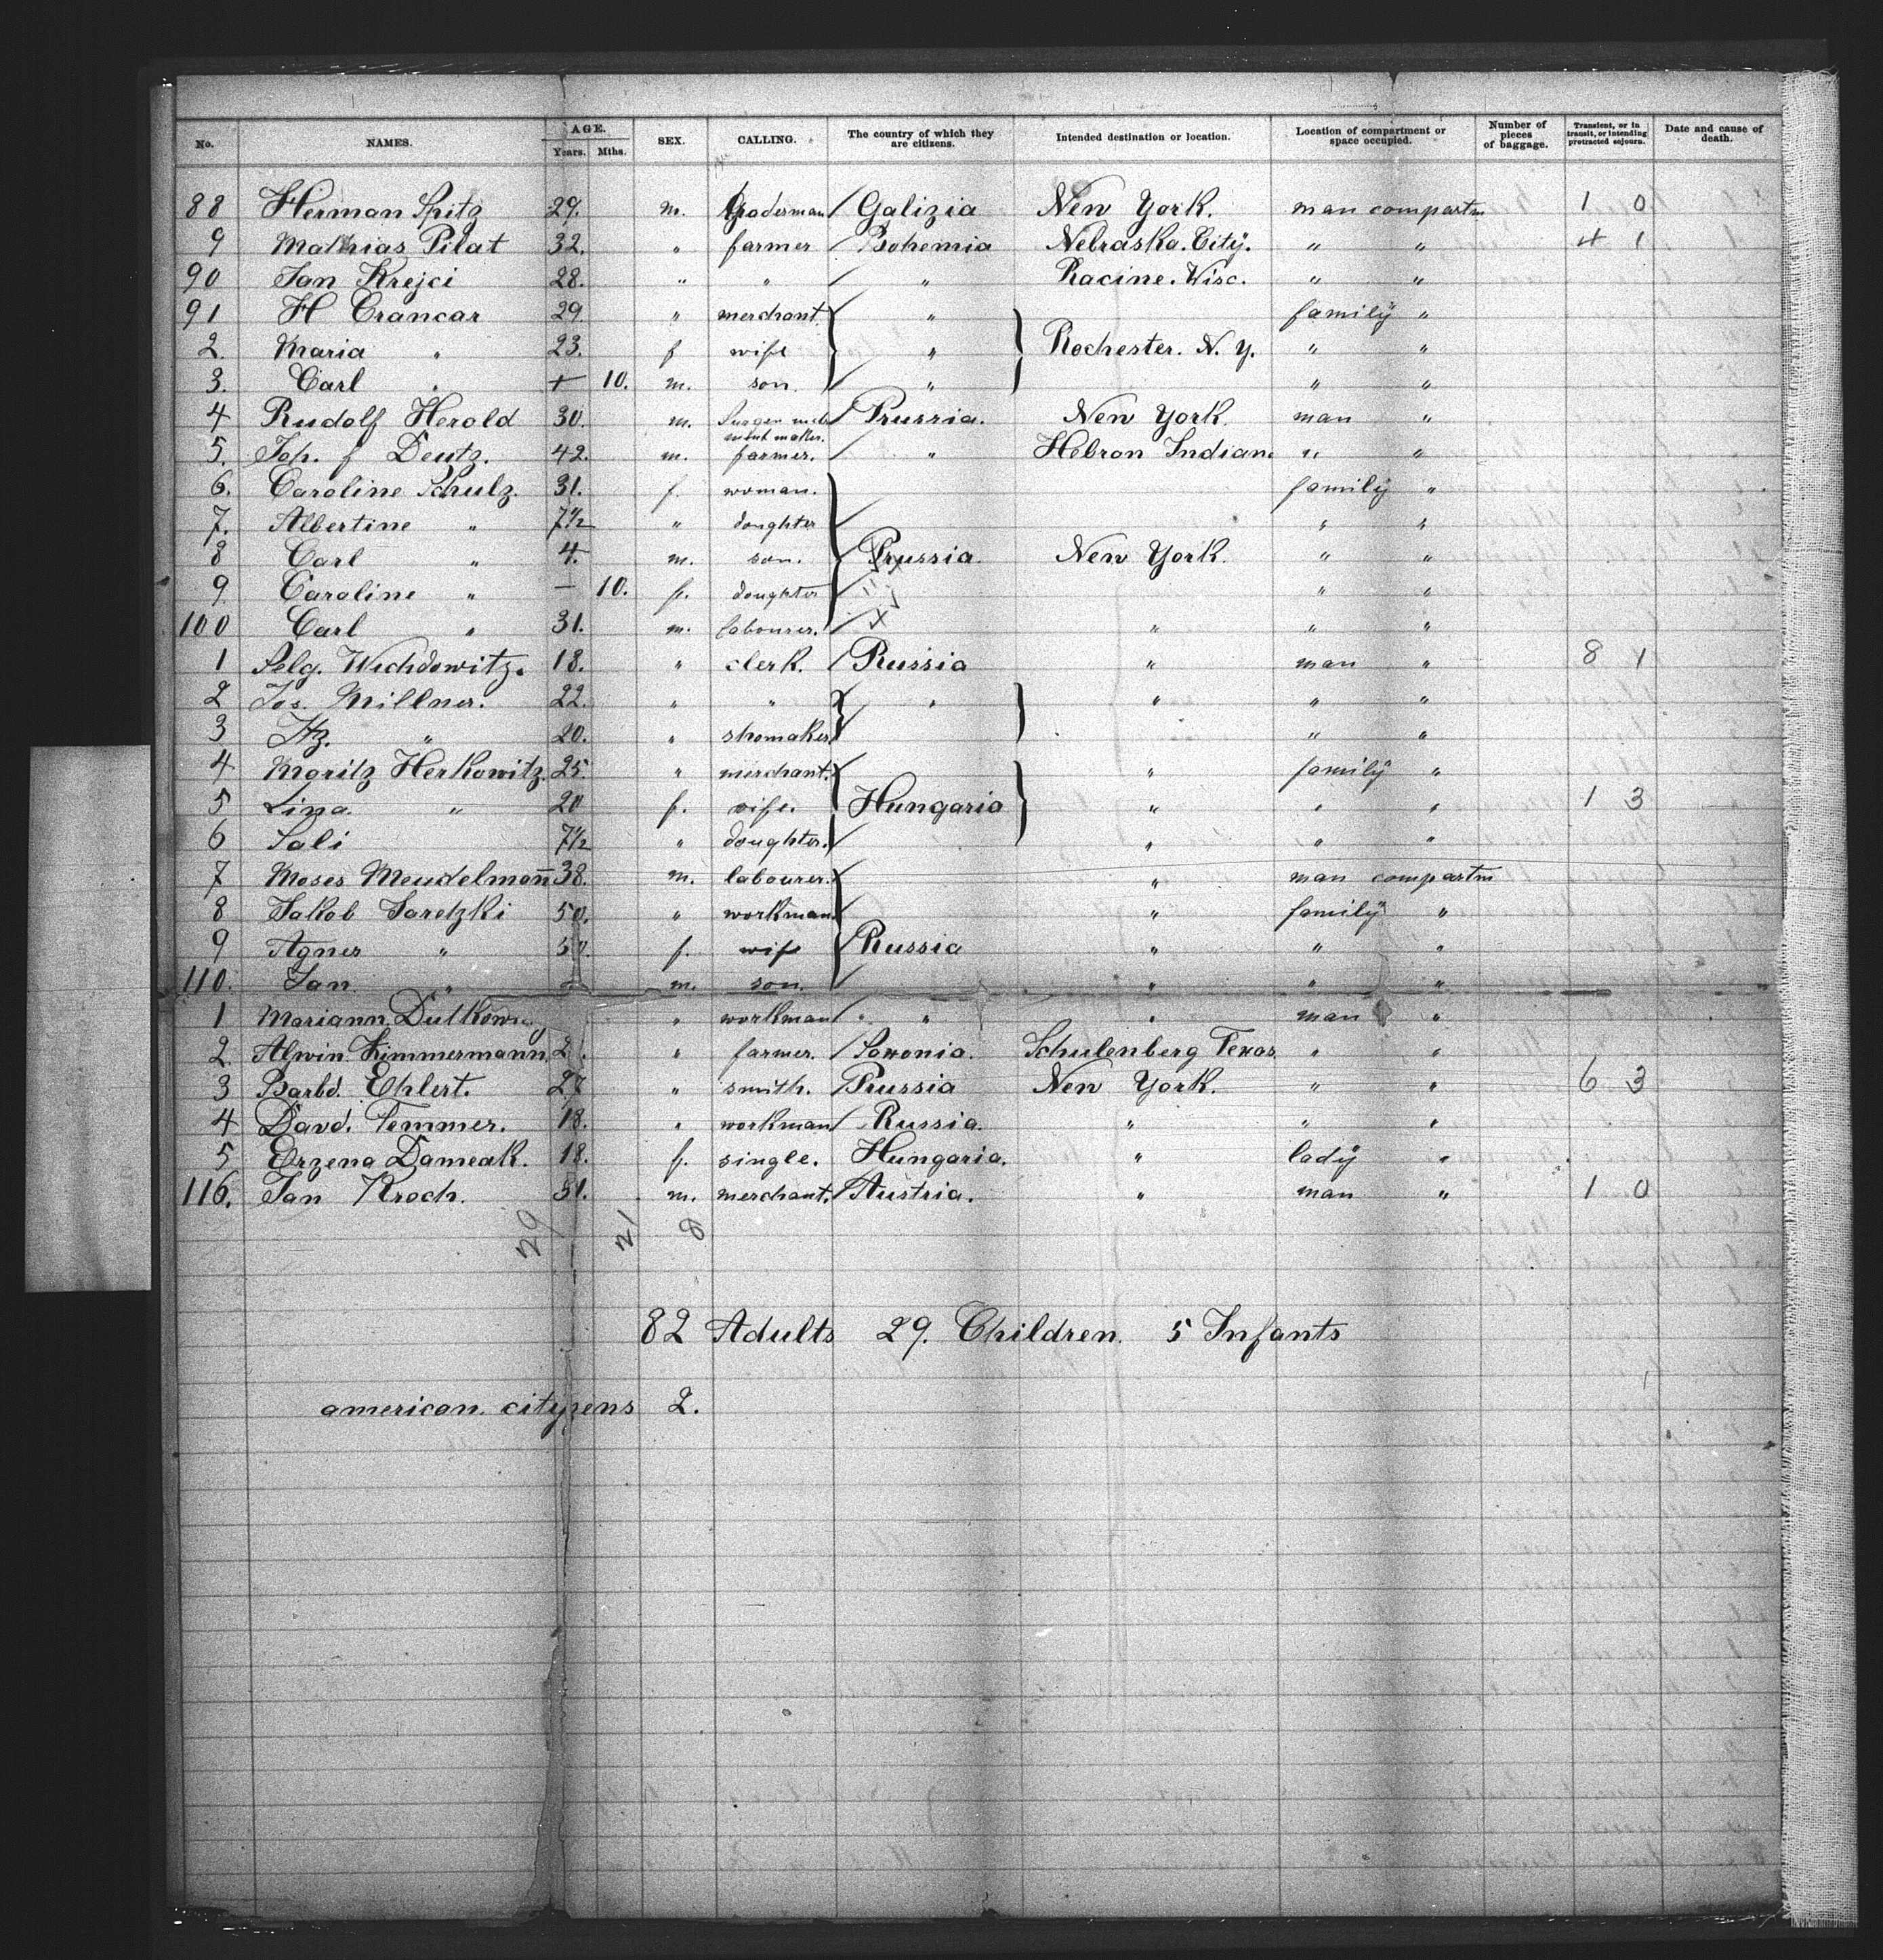 No. NAMES. AGE. Years. Mths. SEX. CALLING. The country of which they are citizens. Intended destination or location. Location of compartment or space occupied. Number of pieces of baggage. Transient, or in transit, or intending protracted sojourn. Date and cause of death.
88 Herman Spitz 29. m. tradesman Galizia New York. man compartm 1 0
9 Mathias Pilat 32. " farmer Bohemia Nebraska. City. " " 4 1
90 Jan Krejci 28. " " " Racine. Wisc. " "
91 H Crancar 29 " merchant. " family "
2. Maria " 23. f wife " Rochester. N. Y. " "
3. Carl " + 10. m. son. " " "
4 Rudolf Herold 30. m. Prussia. New York. man "
5. Joh. f Deutz. 42. m. farmer. " Hebron Indiana " "
6. Caroline Schulz. 31. f. woman. family "
7. Albertine " 7½ " doughter " "
8 Carl " 4. m. son. Prussia. New York. " "
9 Caroline " — 10. f. doughter " "
100 Carl " 31. m. labourer. " " "
1 Selg. Wichdowitz. 18. " clerk. Russia " man " 8 1
2 Jos. Millner. 22. " " " " " "
3 Itz. " 20. " shomaker " "
4 Moritz Herkowitz. 25. " merchant. " family "
5 Lina. " 20 f. wife. Hungaria " " " 1 3
6 Sali 7½ " doughter. " " "
7 Moses Meudelmann 38. m. labourer. " man compartm
8 Jakob Saretzki 50. " workman. " family "
9 Agnes " 50. f. wife Russia " " "
110. Jan. " m. son. " " "
1 Mariann. " workman " " man "
2. Alwin. Zimmermann. 2 . " farmer. Saxonia. Schulenberg Texas " "
3 Barbd. Ehlert. 27 " smith. Prussia New York. " " 6 3
4 Davd. Temmer. 18. " workman Russia. " " "
5 Erzena Dameak. 18. f. single. Hungaria. " lady "
116. Jan Kroch. 51. m. merchant. Austria. " man " 1 0
29 21 8
82 Adults 29. Children. 5 Infants
american. cityzens 2.